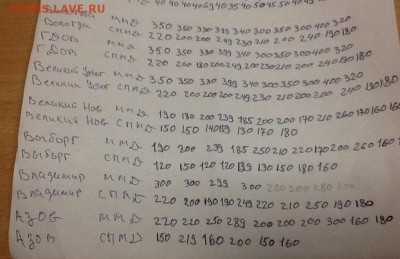 AUKS.LAVE.RU
Вологда ММД 350 350 350 399 340 300 350 350 300 400 320
ГДОВ СПМД 220 200 200 249 230 210 200 240 190 180
ГДОВ ММД 350 350 330 399 340 300 350 350 300 400 320
Великий Устюг СПМД 220 200 200 249 230 210 200 200 240 190 180
Великий Устюг ММД 350 350 330 399 340 300 350 350 300 400 320
СПМД 220 200 200 249 230 210 200 200 240 190 180
Великий Нов ММД 190 180 200 239 185 200 200 170 210 260 170 160 160
Великий Нов СПМД 150 150 140 159 190 170 180
Выборг ММД 190 200 239 185 250 210 220 170 200 260 160
ВЫБОРГ СПМД 120 150 120 120 139 130 150 180 160
Владимир ММД 300 300 299 300 280 300 280 300
Владимир СПМД 220 200 190 190 249 220 210 250 190 180
АЗОВ ММД 220 220 250 289 200 200 200 300 160 180
АЗОВ СПМД 150 219 160 200 150 160